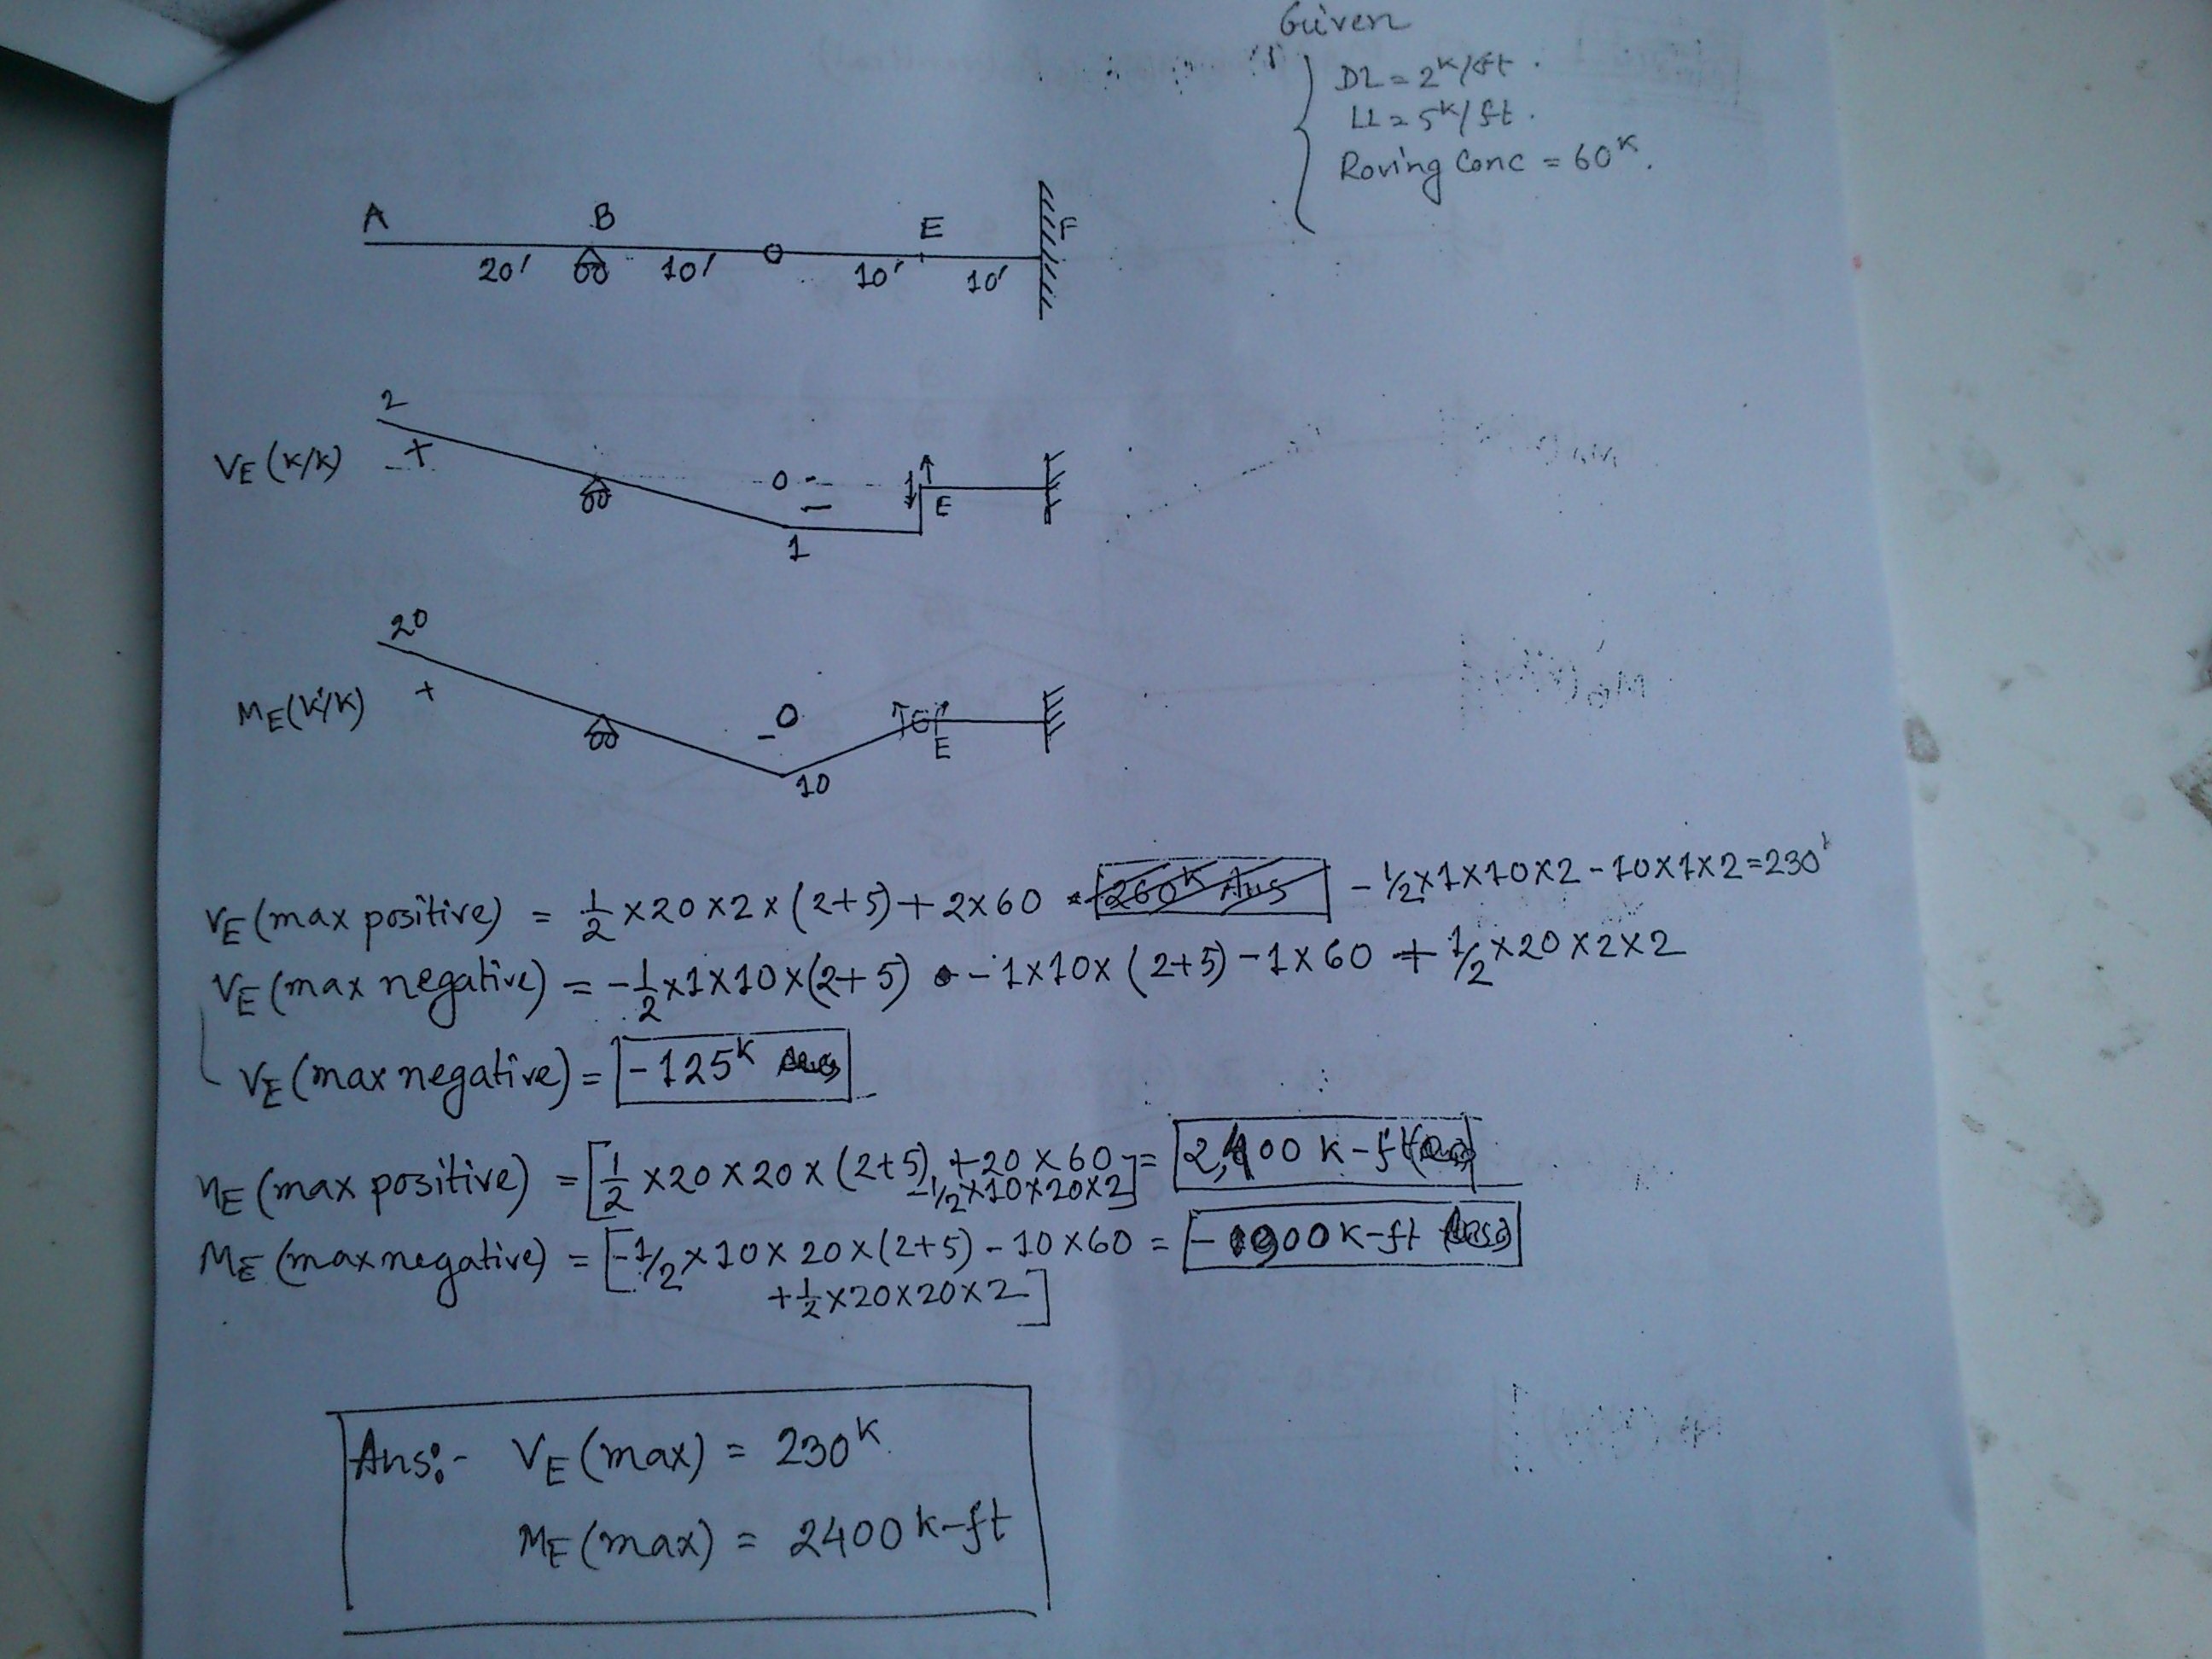 Given
DL = 2ᴷ/ft.
LL = 5ᴷ/ft.
Roving Conc = 60ᴷ.
A B E F
20' 10' 10' 10'
2
+
VE (K/K) 0 -
1 E
20
+
ME (K'/K) - 0
E
10
VE (max positive) = 1/2 × 20 × 2 × (2+5) + 2×60 - 1/2×1×10×2 - 10×1×2 = 230ᴷ
VE (max negative) = -1/2×1×10×(2+5) - 1×10×(2+5) - 1×60 + 1/2×20×2×2
VE (max negative) = -125ᴷ Ans
ME (max positive) = [1/2 × 20 × 20 × (2+5) + 20 × 60 = 2,400 K-ft
-1/2×10×20×2]
ME (max negative) = [-1/2 × 10 × 20 × (2+5) - 10 × 60 = -900 K-ft Ans
+ 1/2 × 20 × 20 × 2]
Ans:- VE (max) = 230ᴷ.
ME (max) = 2400 K-ft